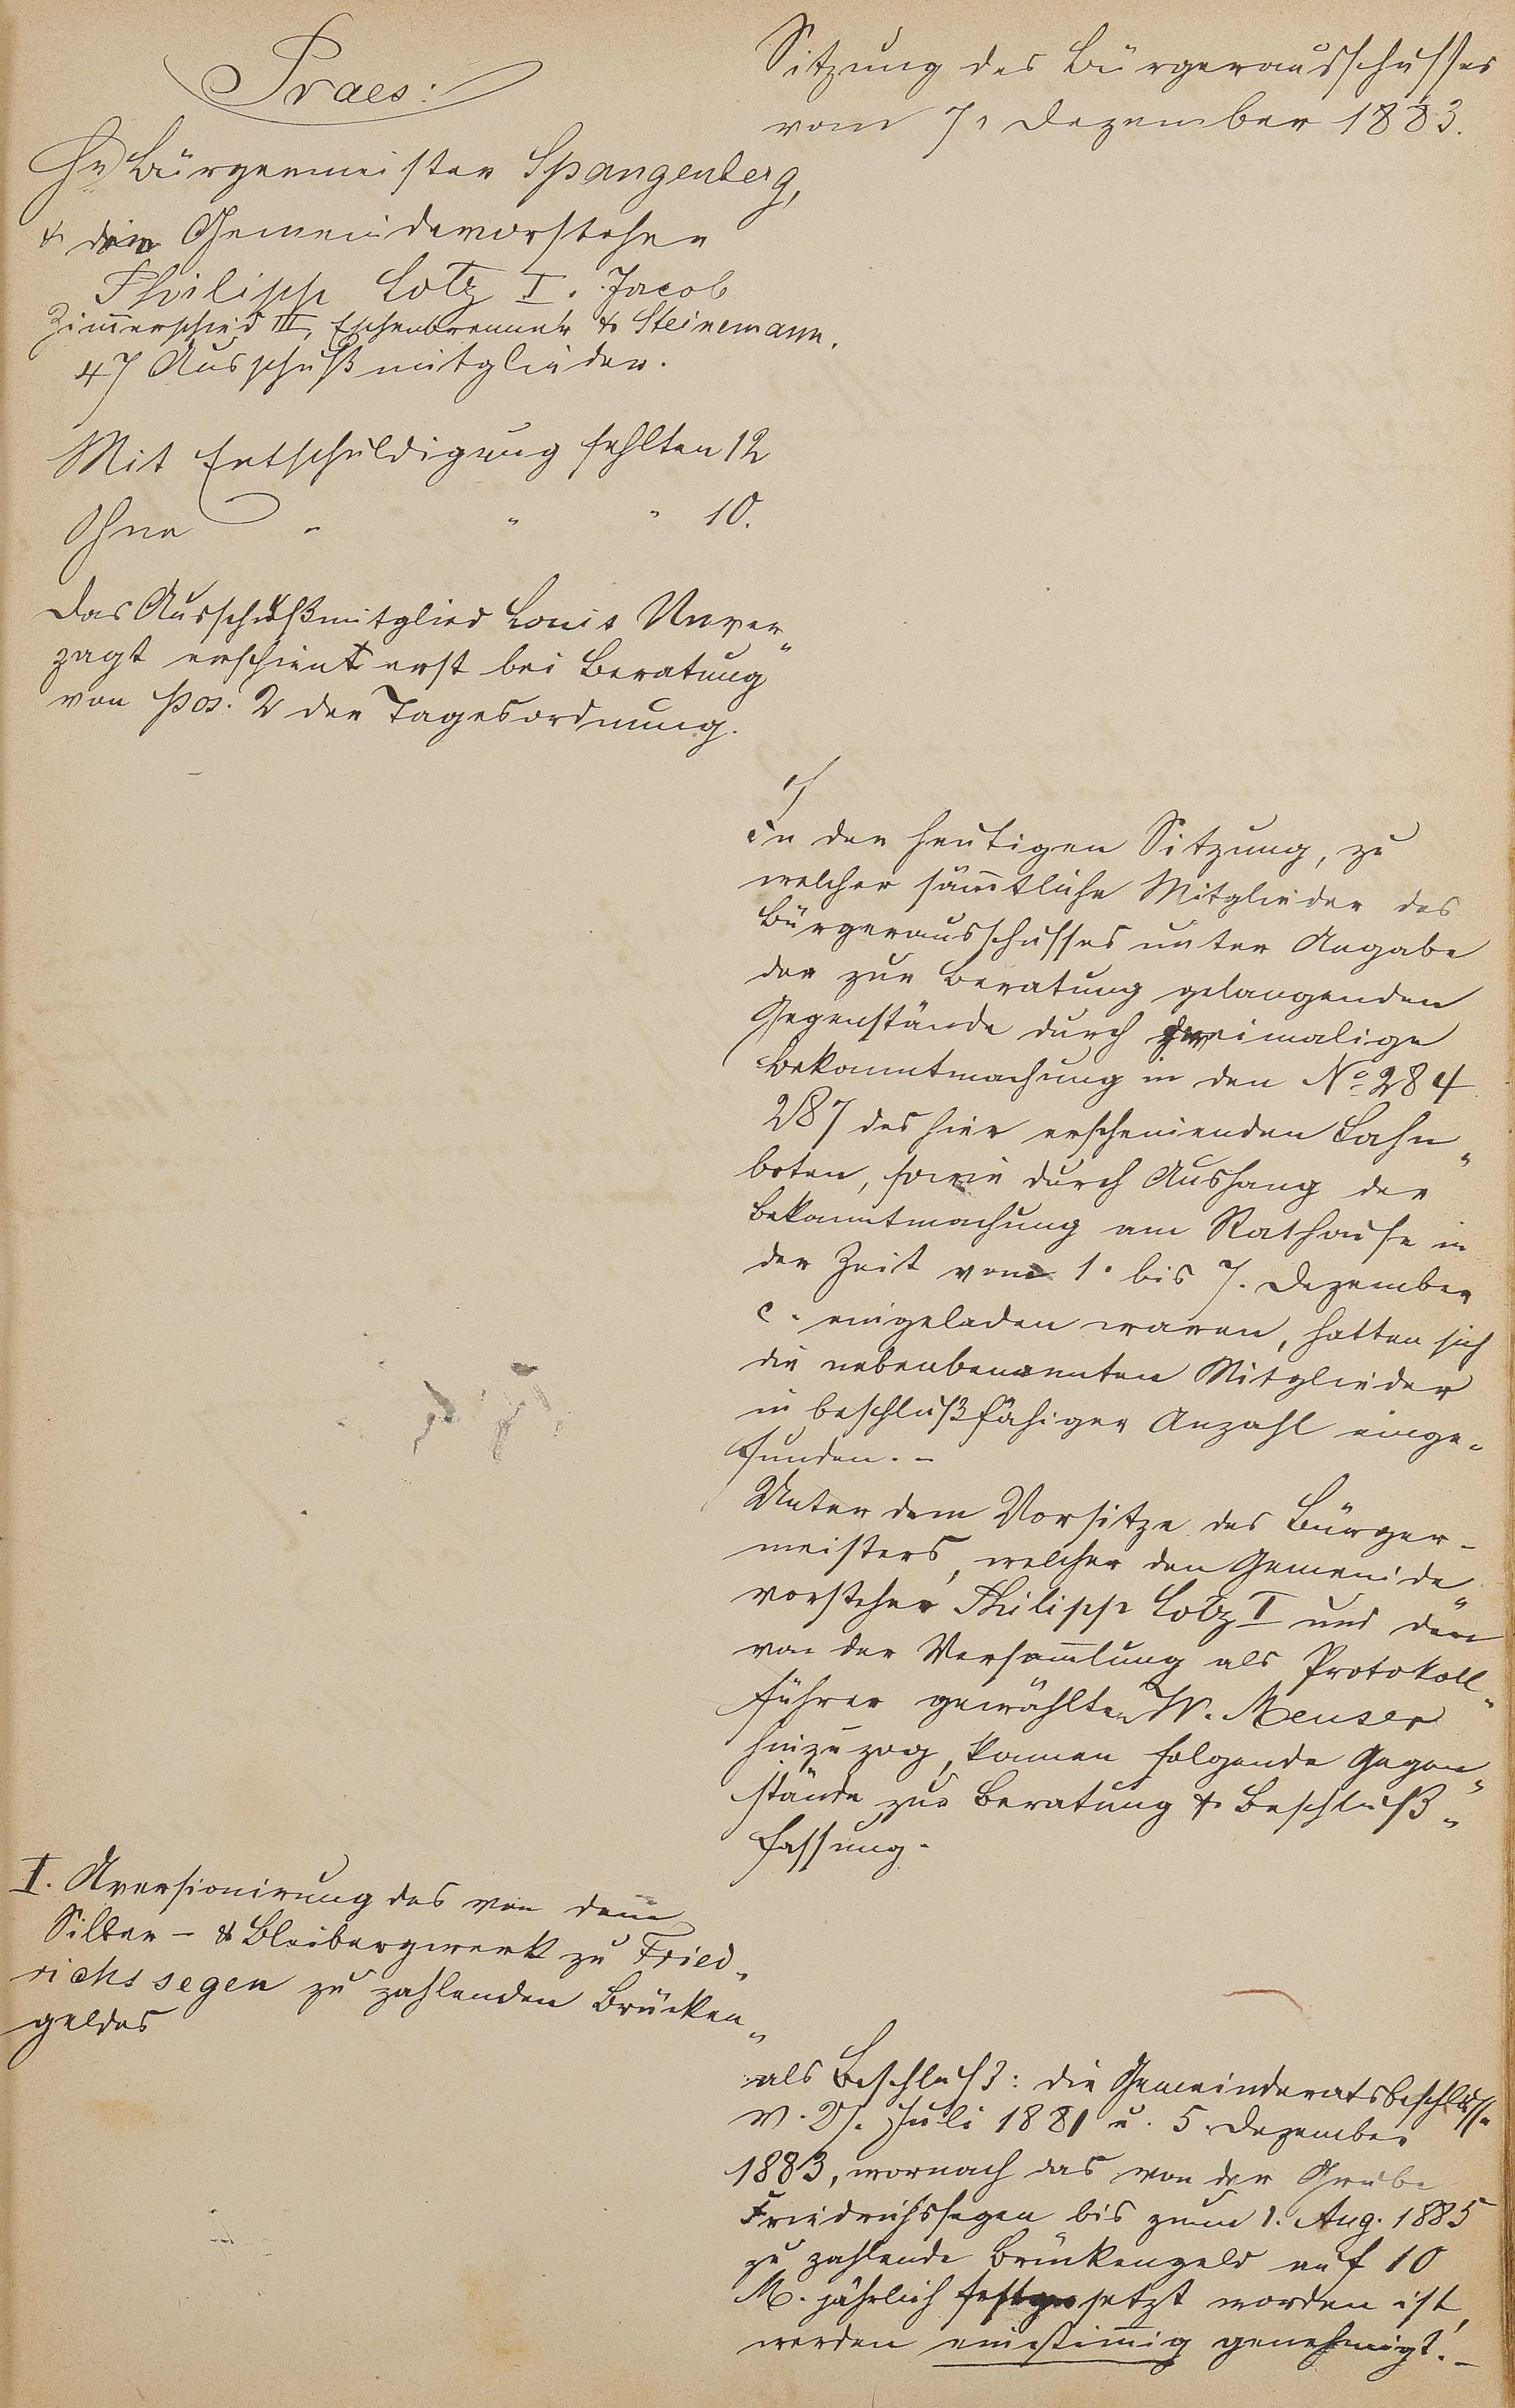 Praes:
Hr Bürgermeister Spangenberg,
& die Gemeindevorsteher
Philipp Lotz I. Jacob
Zim̅erschied III, Eschenbrenner & Steinemann.
47 Ausschußmitglieder.
Mit Entschuldigung fehlten 12
Ohne " " " 10.
Das Ausschußmitglied Louis Unver„
zagt erschient erst bei Beratung
von pos. 2 der Tagesordnung.
Sitzung des Bürgerausschusses
vom 7. Dezember 1883.
In der heutigen Sitzung, zu
welcher säm̅tliche Mitglieder des
Bürgerausschusses unter Angabe
der zur Beratung gelangenden
Gegenstände durch zweimalige
Bekanntmachung in den No 284
287 des hier erscheinenden Lahn„
boten, sowie durch Aushang der
Bekanntmachung am Rathause in
der Zeit vom 1. bis 7. Dezember
c. eingeladen waren, hatten sich
die nebenbenannten Mitglieder
in beschlußfähiger Anzahl einge„
funden. –
Unter dem Vorsitze des Bürger-
meisters, welcher den Gemeinde„
vorsteher Philipp Lotz I und den
von der Versam̅lung als Protokoll„
führer gewählten W. Meuser
hinzuzog, kamen folgende Gegen„
stände zur Beratung & Beschluß„
fassung.
I. Aversionirung des von dem
Silber- & Bleibergwerk zu Fried„
richssegen zu zahlenden Brücken„
geldes
als Beschluß: die Gemeinderatsbeschlüsse
v. 27. Juli 1881 u. 5. Dezember
1883, wornach das von der Grube
Friedrichssegen bis zum 1. Aug. 1885
zu zahlende Brückengeld auf 10
M. jährlich festgesetzt worden ist,
werden einstim̅ig genehmigt. –